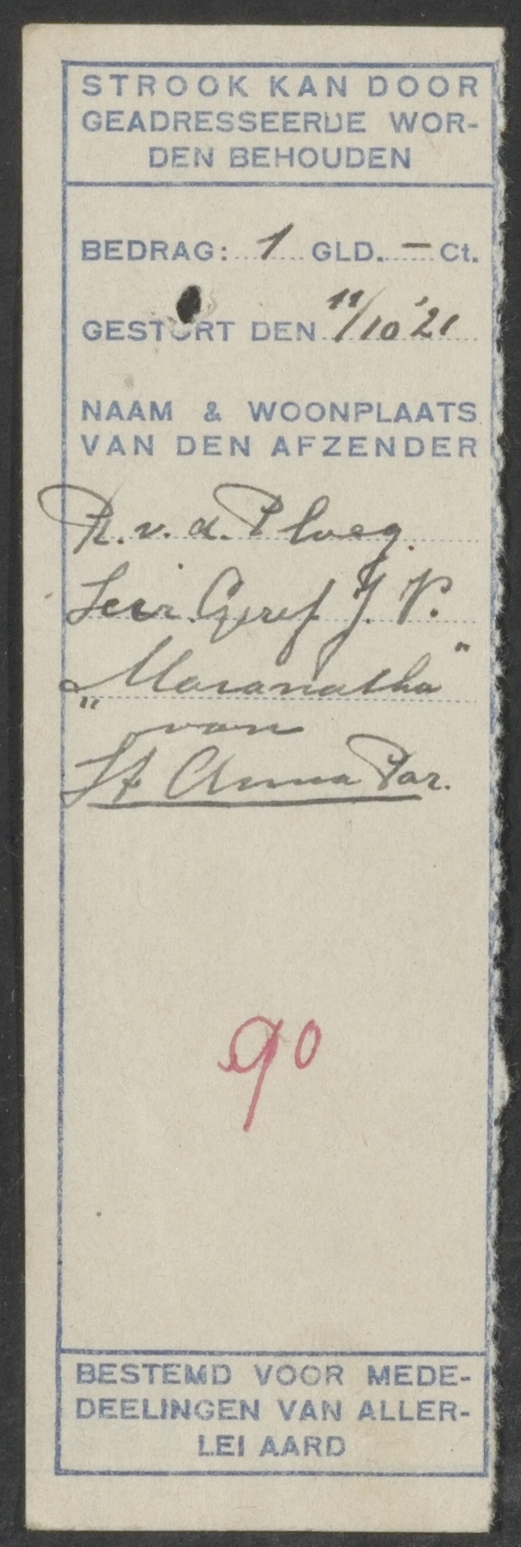 STROOK KAN DOOR
GEADRESSEERDE WOR-
DEN BEHOUDEN
BEDRAG: 1 GLD. — Ct.
GESTORT DEN 11/10 '21
NAAM & WOONPLAATS
VAN DEN AFZENDER
R. v. d. Ploeg.
Secr. Geref J. V.
"Maranatha"
van
St Anna Par.
90
BESTEMD VOOR MEDE-
DEELINGEN VAN ALLER-
LEI AARD